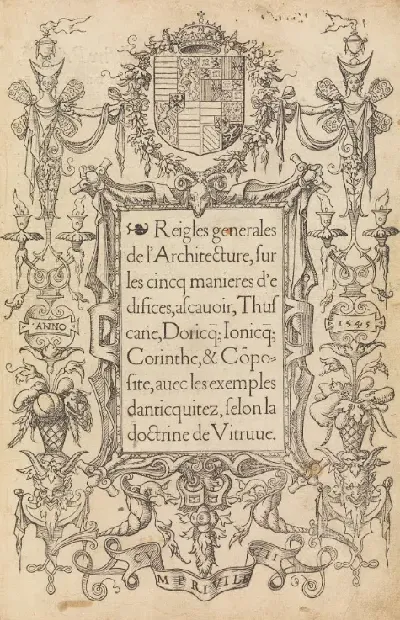 ❧ Reigles generales
de l'Architecture, sur
les cincq manieres d'e
difices, ascauoir, Thus
cane, Doricq̃: Ionicq̃:
Corinthe, & Cõpo-
site, auec les exemples
danticquitez, selon la
doctrine de Vitruue.
ANNO
1545
PRIVILE